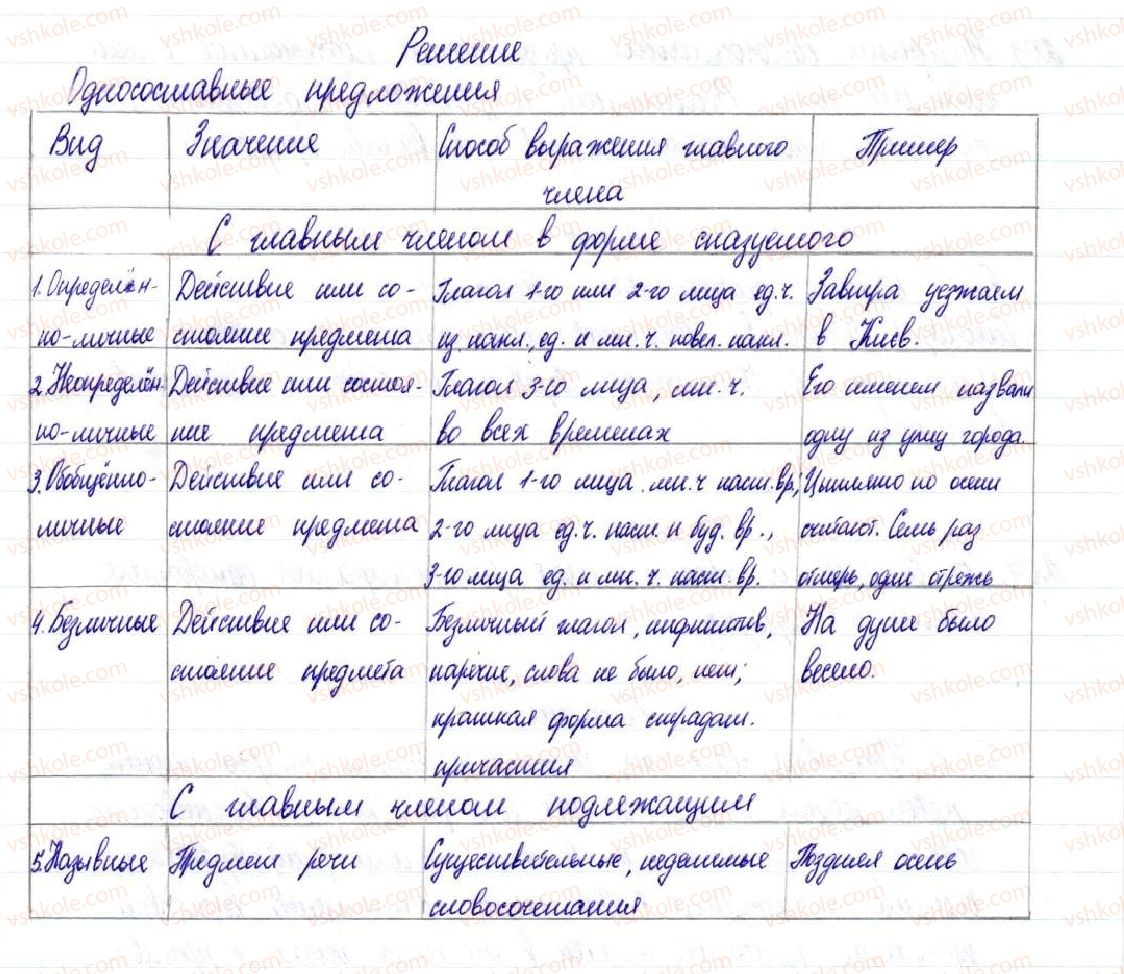 Решение
Односоставные предложения
Вид Значение Способ выражения главного члена Пример
С главным членом в форме сказуемого
1. Определён- Действие или со- Глагол 1-го или 2-го лица ед.ч. Завтра уезжаем
но-личные стояние предмета из накл., ед. и мн. ч. повел. накл. в Киев.
2. Неопределён- Действие или состоя- Глагол 3-го лица, мн. ч. Его именем назвали
но-личные ние предмета во всех временах одну из улиц города.
3. Обобщённо- Действие или со- Глагол 1-го лица мн. ч наст. вр., Цыплят по осени
личные стояние предмета 2-го лица ед. ч. наст. и буд. вр., считают. Семь раз
3-го лица ед. и мн. ч. наст. вр. отмерь, один отрежь
4. Безличные Действие или со- Безличный глагол, инфинитив, На душе было
стояние предмета наречие, слова не было, нет; весело.
краткая форма страдат.
причастия
С главным членом подлежащим
5. Назывные Предмет речи Существительные, неделимые Поздняя осень
словосочетания